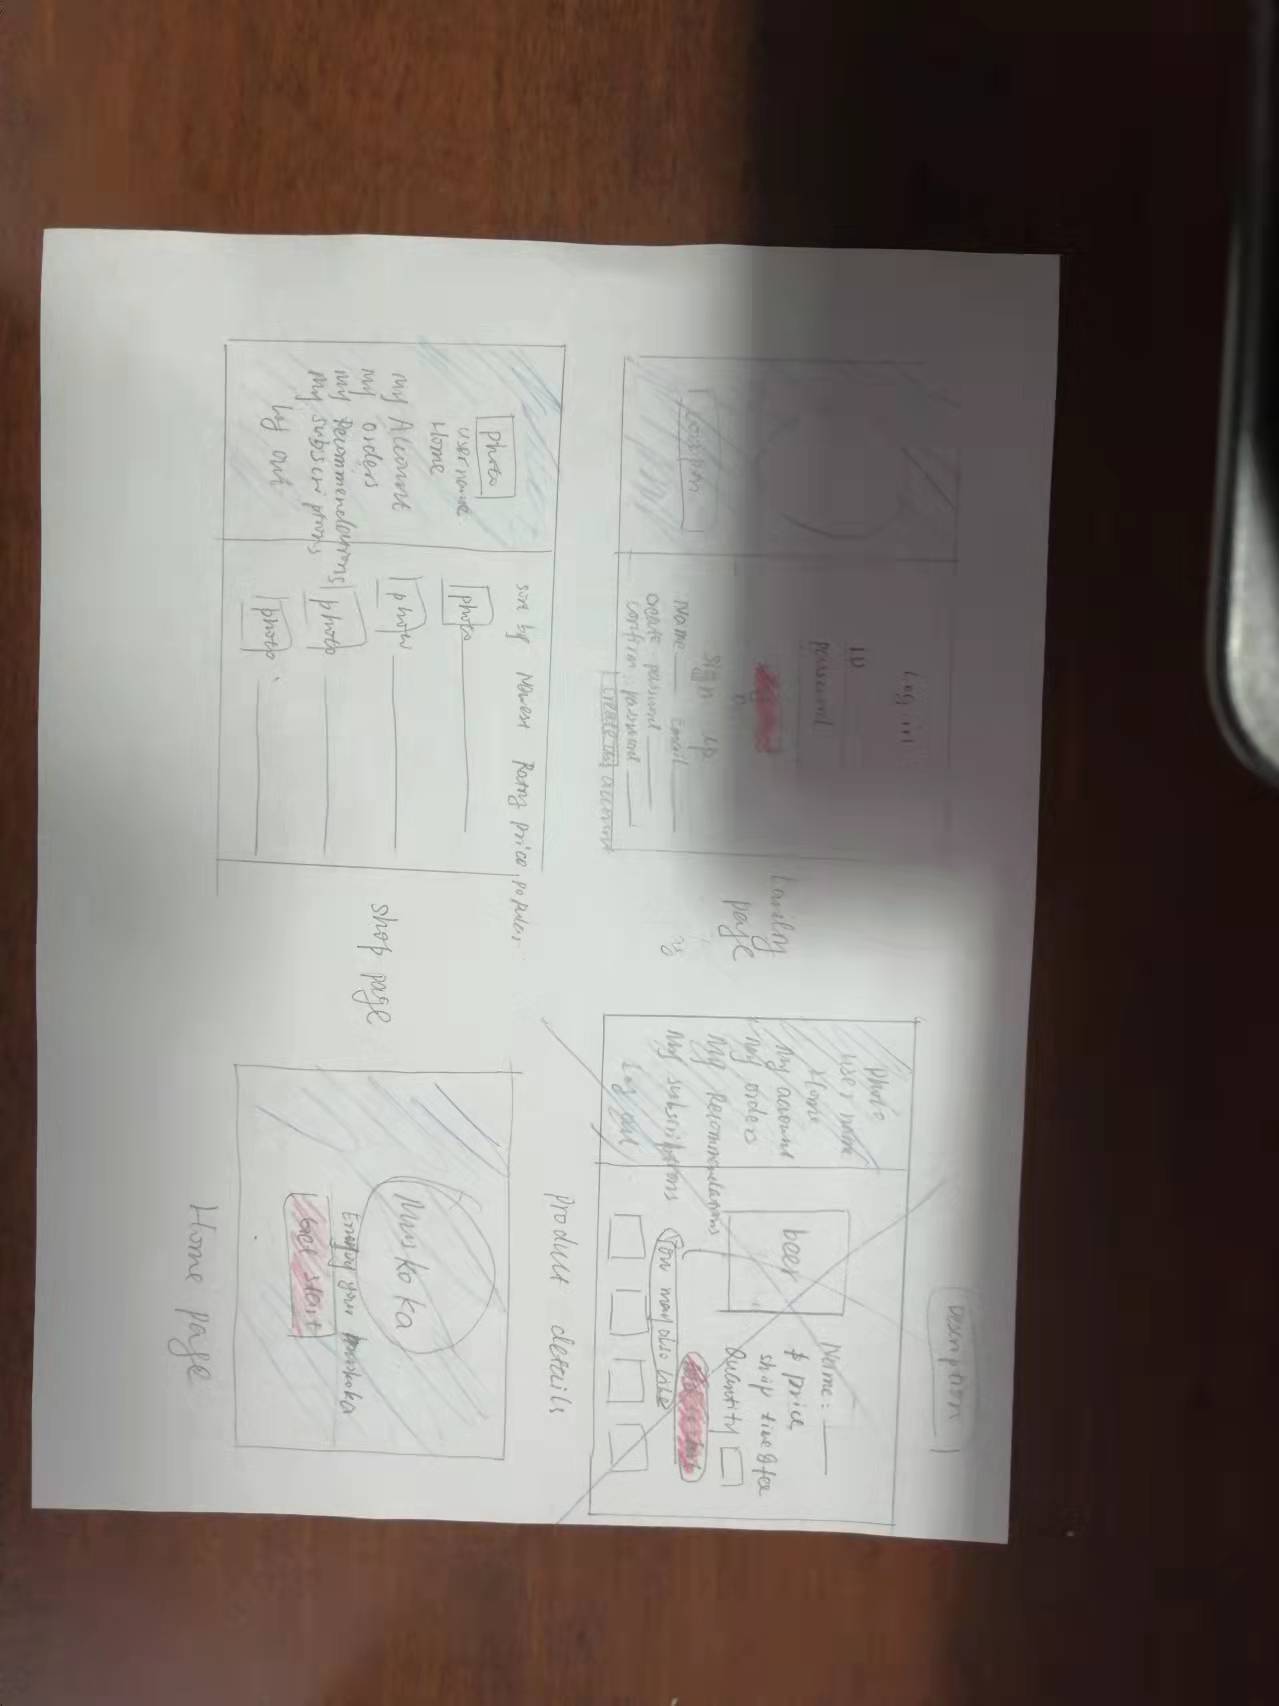 Log in
ID
password
Sign up
Name Email
create password
confirm password
account
page
Description
photo
user name
Home
my account
my orders
my Recommendations
my subscriptions
Log out
beer
Name:
$ price
Quantity
You may also like
product details
photo
username
Home
my Account
my orders
my Recommendations
my
log out
Newest Rating price
photo
photo
photo
photo
shop page
Muskoka
your muskoka
Get start
Home page